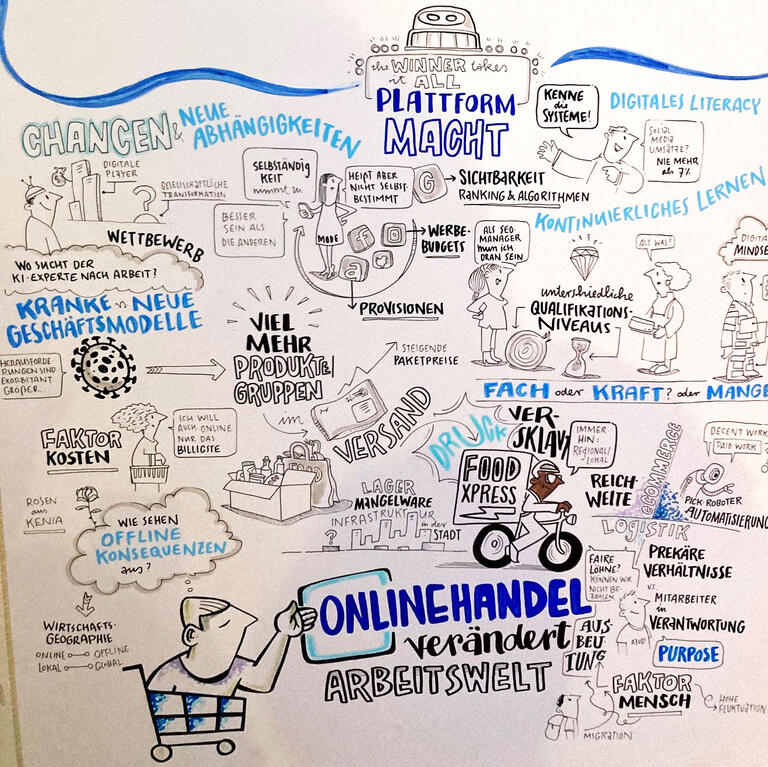 the WINNER takes
it ALL
PLATTFORM
MACHT
CHANCEN & NEUE
ABHÄNGIGKEITEN
DIGITALE
PLAYER
GESELLSCHAFTLICHE
TRANSFORMATION
WETTBEWERB
WO SUCHT DER
KI-EXPERTE NACH ARBEIT?
SELBSTÄNDIG
KEIT
nimmt zu
BESSER
SEIN ALS
DIE ANDEREN
MODE
HEIßT ABER
NICHT SELBST-
BESTIMMT
G
f
a
SICHTBARKEIT
RANKING & ALGORITHMEN
WERBE-
BUDGETS
PROVISIONEN
KENNE
die
SYSTEME!
DIGITALES LITERACY
SOCIAL
MEDIA
UMSÄTZE?
NIE MEHR
als 7%
KONTINUIERLICHES LERNEN
ALS SEO-
MANAGER
muss ich
DRAN SEIN
unterschiedliche
QUALIFIKATIONS-
NIVEAUS
ALS WAS?
DIGITA
MINDSE
FACH oder KRAFT? oder MANGE
KRANKE vs NEUE
GESCHÄFTSMODELLE
HERAUSFORDE
RUNGEN SIND
EXORBITANT
GRÖßER
VIEL
MEHR
PRODUKTE/
GRUPPEN
im
VERSAND
STEIGENDE
PAKETPREISE
FAKTOR
KOSTEN
ICH WILL
AUCH ONLINE
NUR DAS
BILLIGSTE
ROSEN
aus
KENIA
WIE SEHEN
OFFLINE
KONSEQUENZEN
aus?
WIRTSCHAFTS-
GEOGRAPHIE
ONLINE OFFLINE
LOKAL GLOBAL
LAGER
MANGELWARE
INFRASTRUKTUR
in der
STADT
?
DRUCK
VER-
SKLAVT
FOOD
XPRESS
IMMER-
HIN:
REGIONAL/
LOKAL
REICH-
WEITE
ECOMMERCE
LOGISTIK
DECENT WORK
PAID WORK
PICK-ROBOTER
AUTOMATISIERUN
FAIRE
LÖHNE?
KÖNNEN WIR
NICHT BE-
ZAHLEN
PREKÄRE
VERHÄLTNISSE
vs.
MITARBEITER
in
VERANTWORTUNG
PURPOSE
AUS-
BEU
TUNG
FAKTOR
MENSCH
HOHE
FLUKTUATION
MIGRATION
ONLINEHANDEL
verändert
ARBEITSWELT